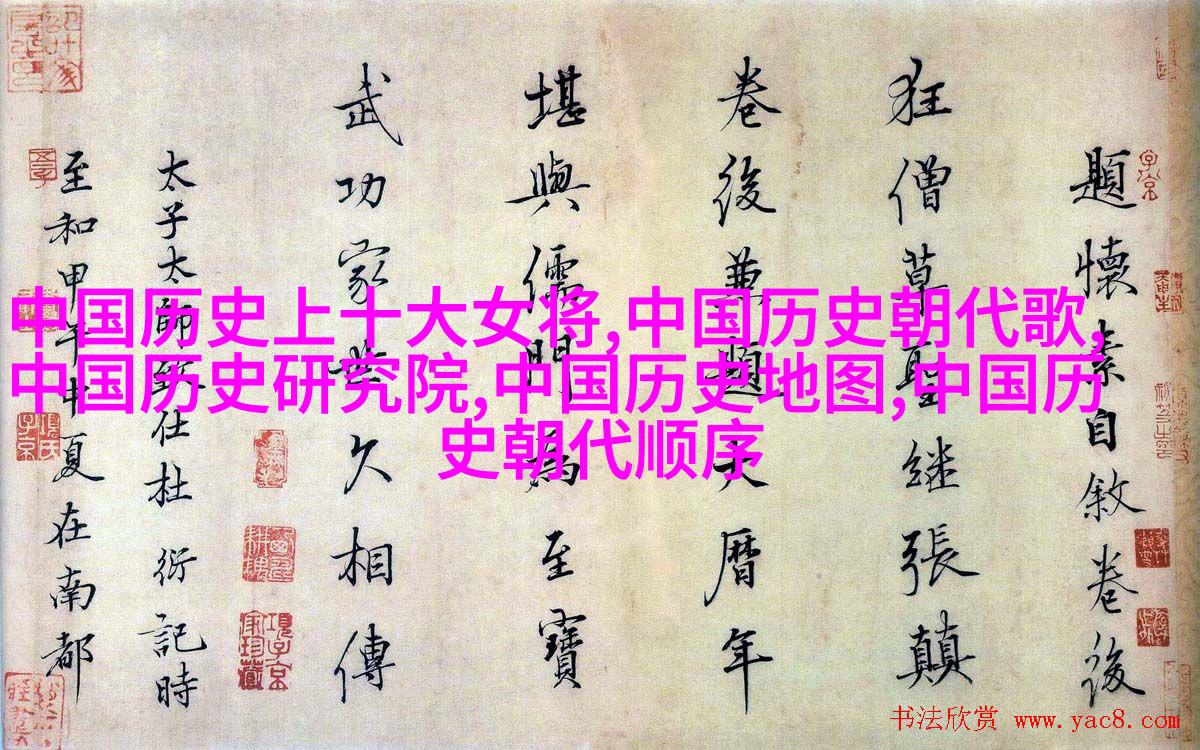 題懷素自敘卷後
狂僧草聖継張顛
卷後兼題大曆年
堪與儒門為至寶
武功家世久相傳
太子太師致仕杜衍記時
至和甲午中夏在南都
中国历史上十大女将,中国历史朝代歌,
中国历史研究院,中国历史地图,中国历
史朝代顺序
项子京
家珍藏
书法欣赏 www.yac8.com